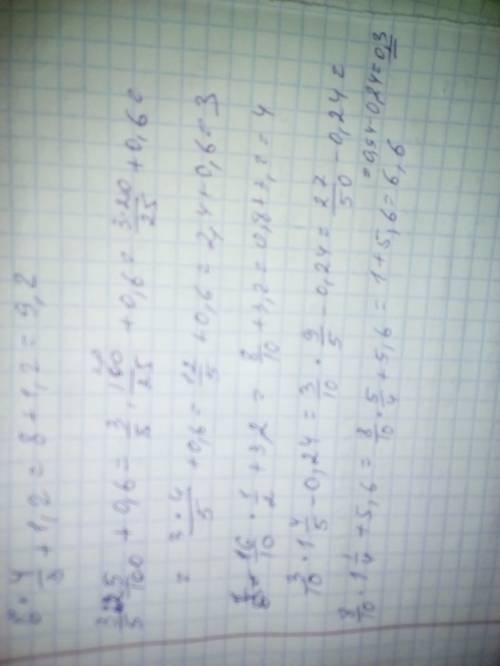 + 1,2 = 8 + 1,2 = 9,2
+ 0,6 = 3/5 · 100/25 + 0,6 = 3·20/25 + 0,6 =
= 3·4/5 + 0,6 = 12/5 + 0,6 = 2,4 + 0,6 = 3
16/10 · 1/2 + 3,2 = 8/10 + 3,2 = 0,8 + 3,2 = 4
3/10 · 1 4/5 - 0,24 = 3/10 · 9/5 - 0,24 = 27/50 - 0,24 =
= 0,54 - 0,24 = 0,3
8/10 · 1 1/4 + 5,6 = 8/10 · 5/4 + 5,6 = 1 + 5,6 = 6,6